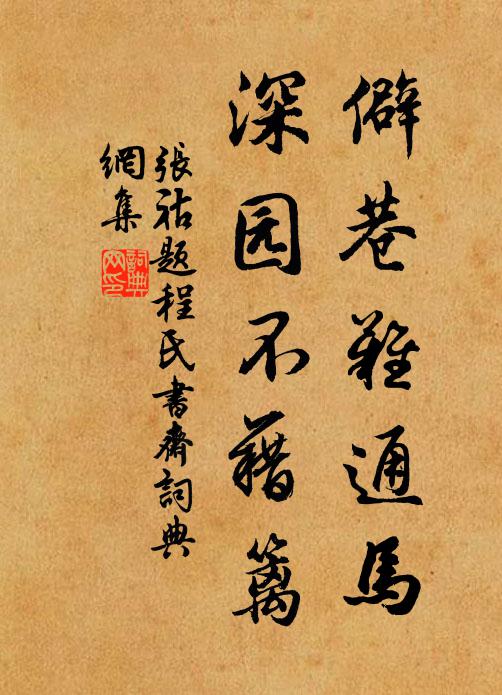 僻巷難通馬
深园不藉籬
張祜題程氏書齋詞典
網集
詞典
网印